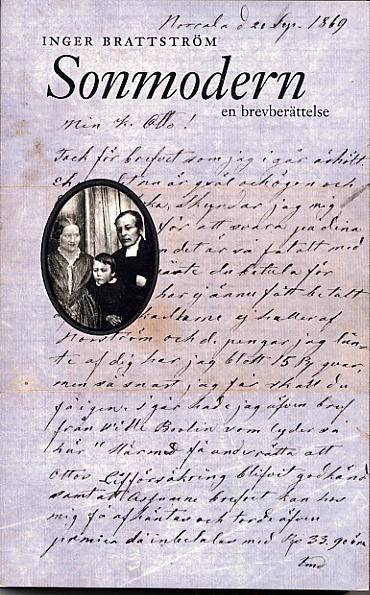 Norrala d 20 Sep. 1869
INGER BRATTSTRÖM
Sonmodern
en brevberättelse
Min K. Otto!
Tack för brefvet som jag i går erhöll.
och
skyndar jag mig
för att svara på dina
det är så fatalt med
du betala för
har ej ännu fått betalt
ej heller af
Norström och de pengar jag lån-
te af dig har jag blott 15 kvar,
men så snart jag får skall du
få igen. I går hade jag äfven bref
från Wille Boolin som lyder så
här "Härmed få underrätta att
Ottos Lifförsäkring blifvit godkänd
samt att brefvet kan hos
mig få afhämtas och torde äfven
premien då inbetalas med 33.90 öre